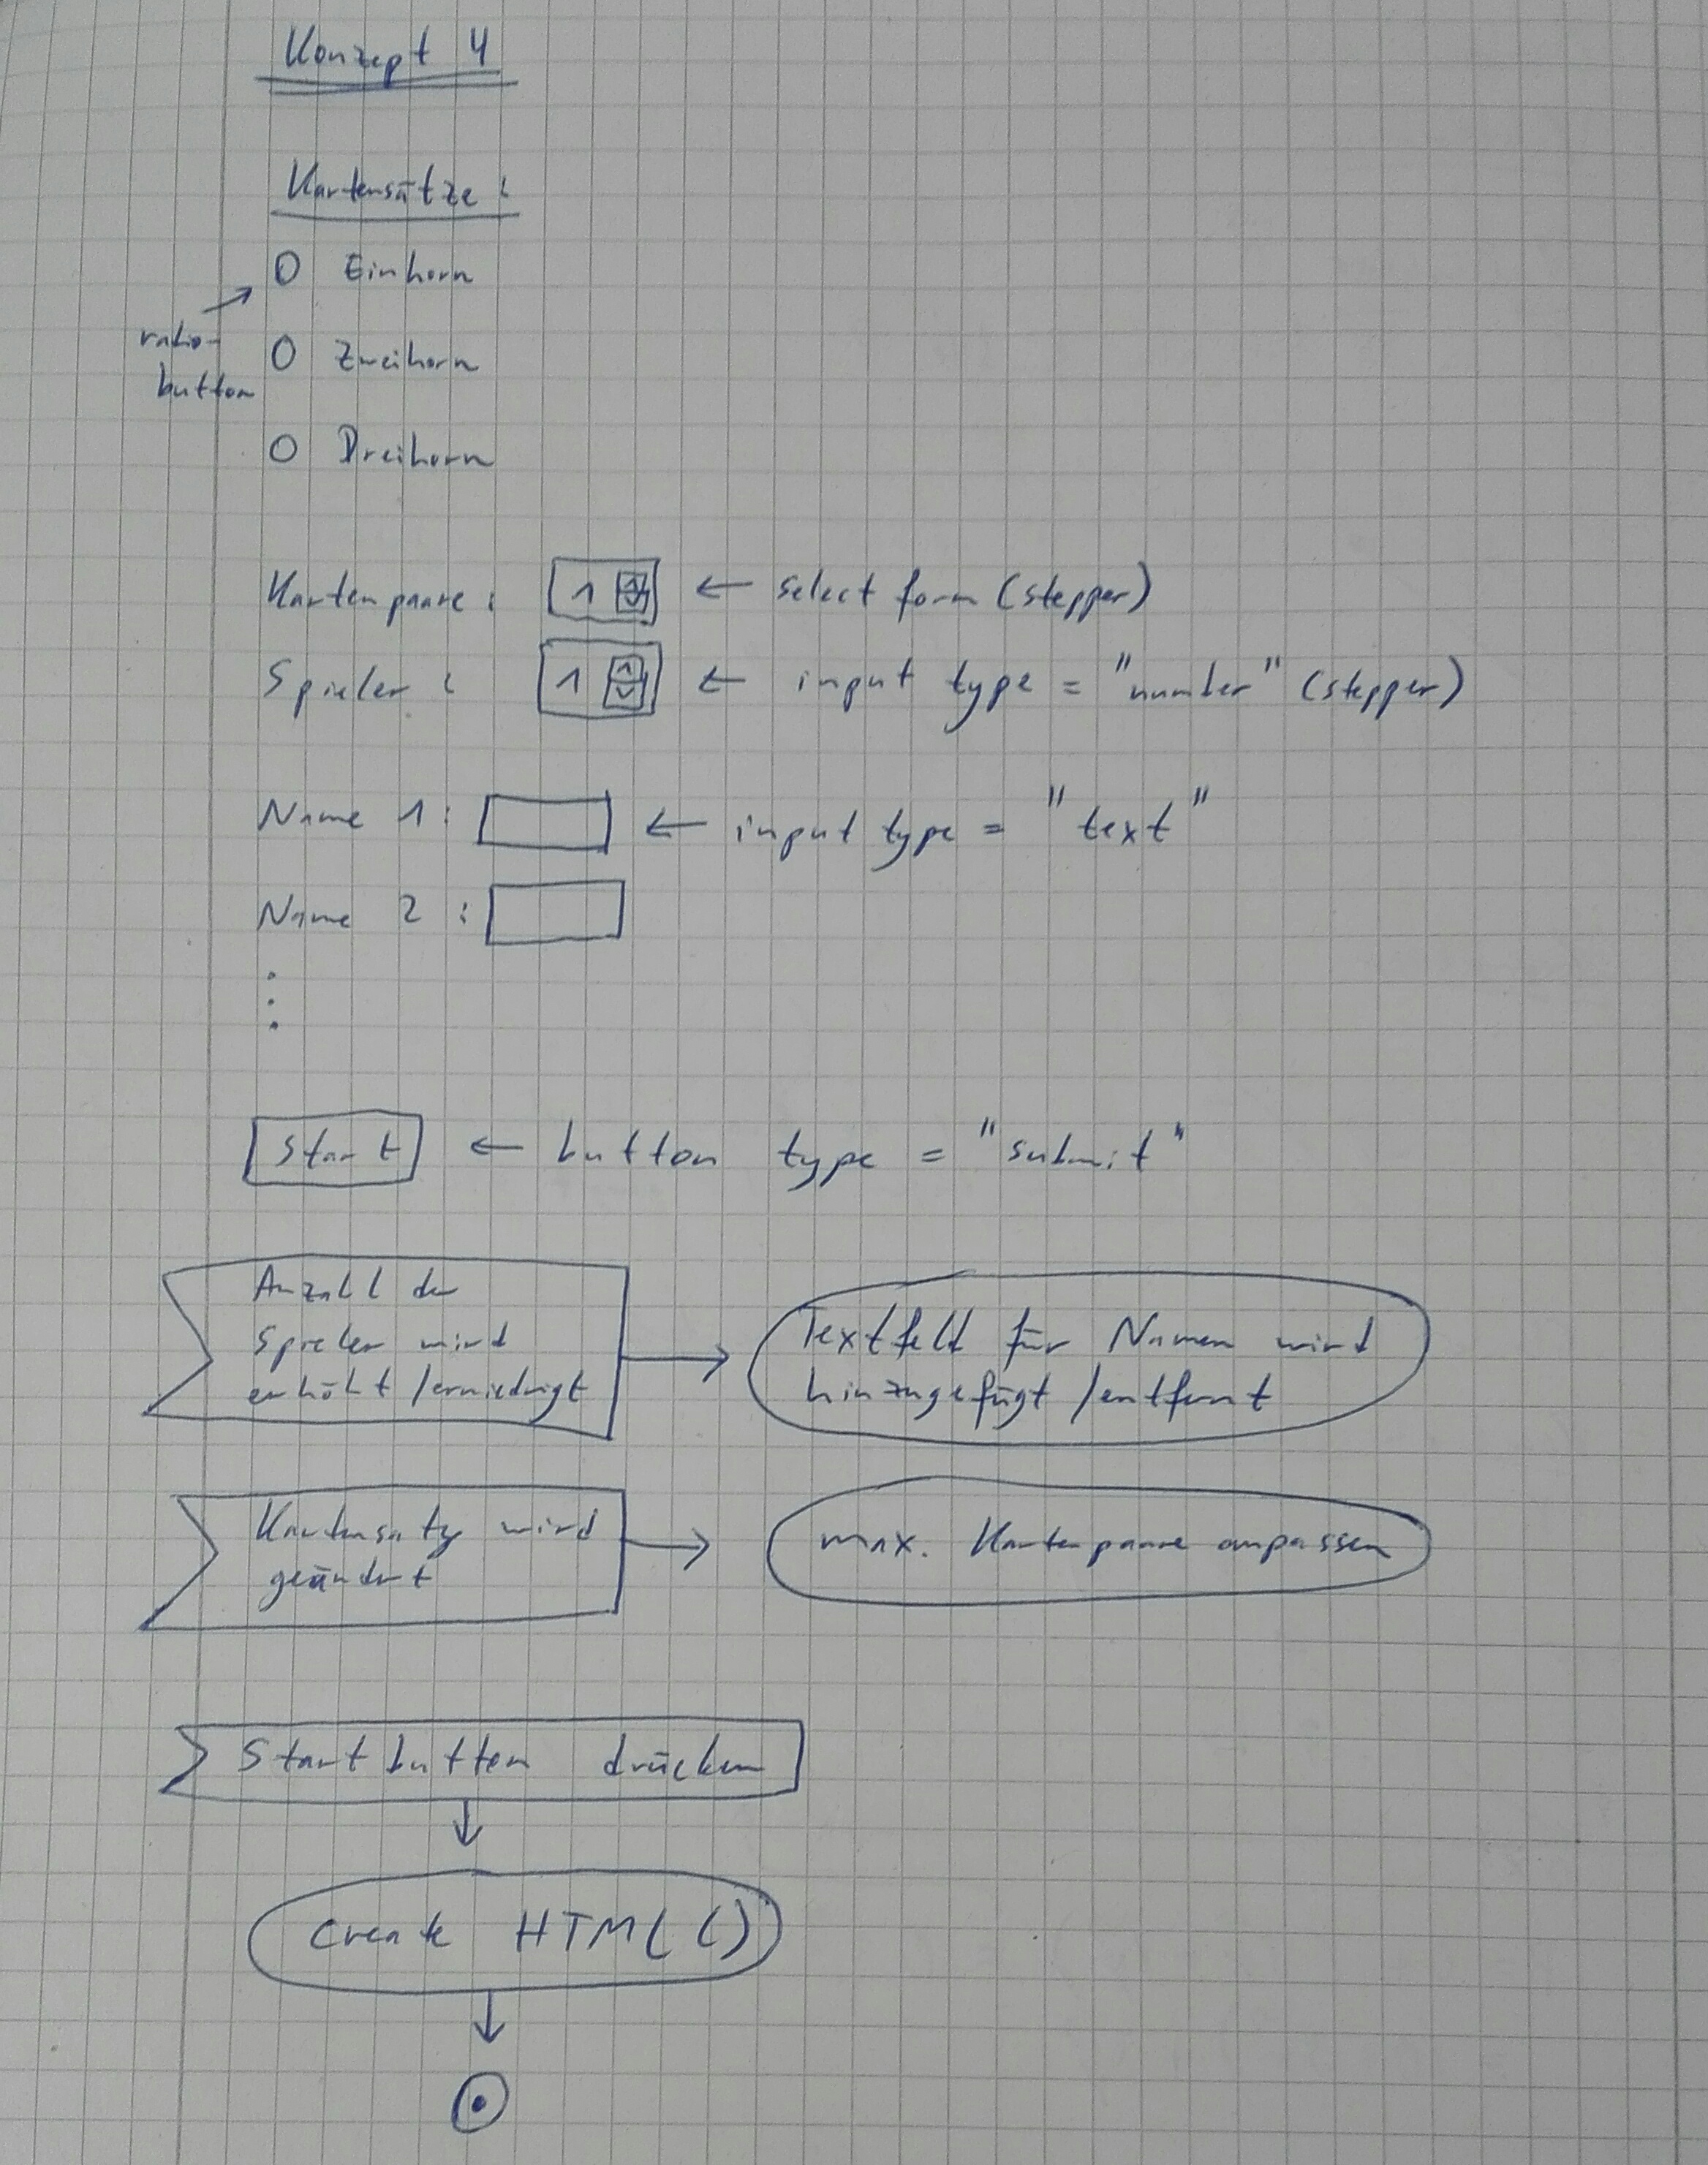 Konzept 4
Kartensätze:
O Einhorn
ratio-
button
O Zweihorn
O Dreihorn
Kartenpaare: 1 ← select form (stepper)
Spieler: 1 ← input type = "number" (stepper)
Name 1: ← input type = "text"
Name 2:
Start ← button type = "submit"
Anzahl der
Spieler wird
erhöht / erniedrigt
Textfeld für Namen wird
hinzugefügt / entfernt
Kartensatz wird
geändert
max. Kartenpaare anpassen
Startbutton drücken
Create HTML ()